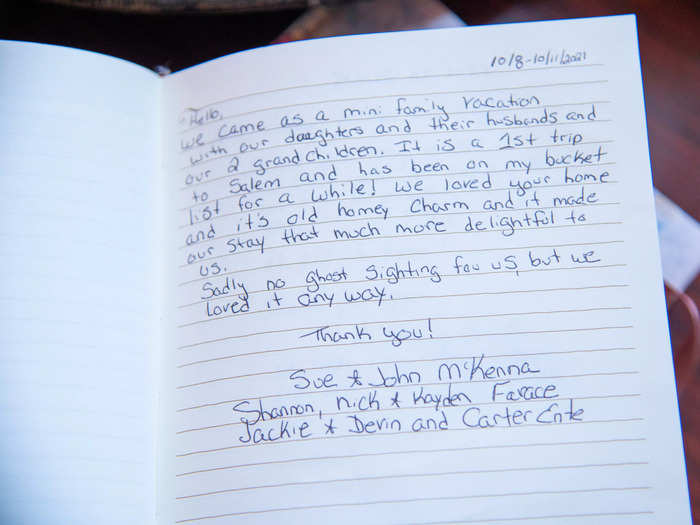 10/8-10/11/2021
Hello,
We came as a mini family vacation
with our daughters and their husbands and
our 2 grandchildren. It is a 1st trip
to Salem and has been on my bucket
list for a while! We loved your home
and it's old homey charm and it made
our stay that much more delightful to
us.
Sadly no ghost sighting fou us, but we
loved it any way.
Thank you!
Sue & John McKenna
Shannon, Nick & Kayden Farace
Jackie & Devin and Carter Ente